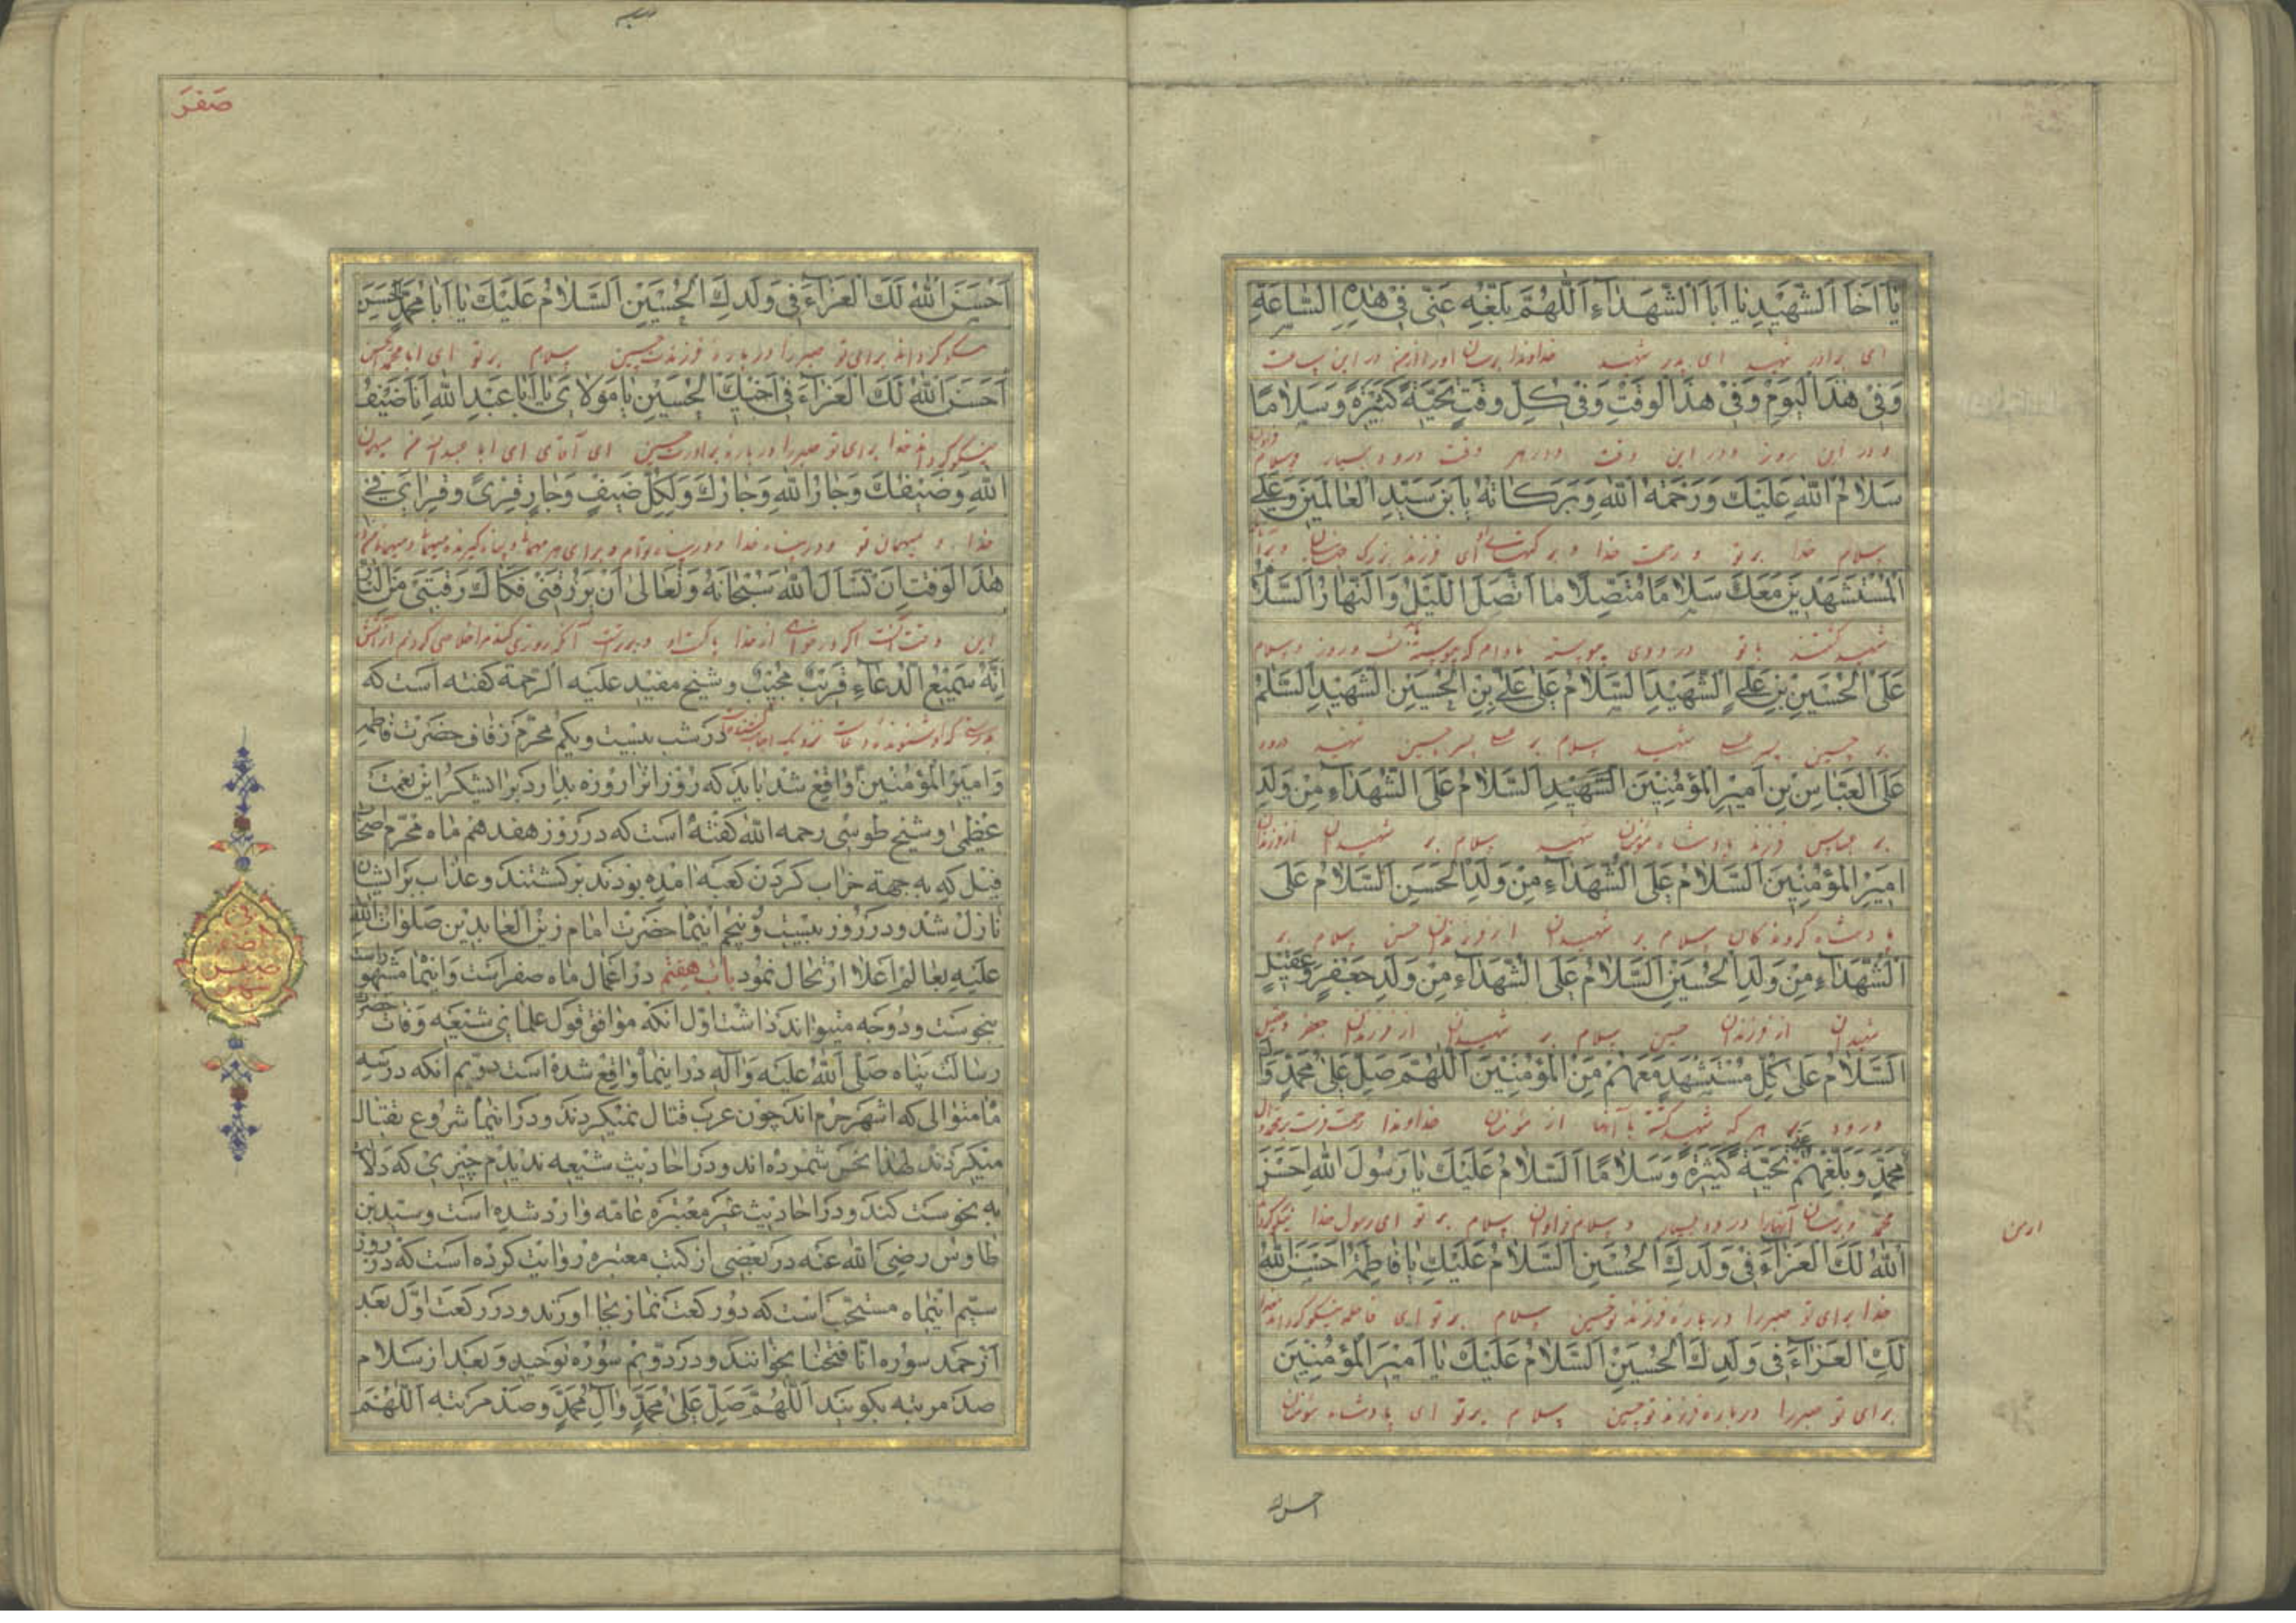 يَا اَخَا الشَّهيدِ يَا اَبَا الشُّهَدَاءِ اَللّٰهُمَّ بَلِّغْهِ عَنّى فى هٰذِهِ السَّاعَةِ
ای برادر شهید ای پدر شهید خداوندا برسان اورا از من در این ساعت
وَفى هٰذَا الْيَوْمِ وَفى هٰذَا الْوَقْتِ وَفى كُلِّ وَقْتٍ تَحِيَّةً كَثيرَةً وَسَلَامًا
و در این روز و در این وقت و در هر وقت درود بسیار و سلام فراوان
سَلَامُ اللهِ عَلَيْكَ وَرَحْمَةُ اللهِ وَبَرَكَاتُهُ يَا بْنَ سَيِّدِ الْعَالَمينَ وَعَلَى
سلام خدا بر تو و رحمت خدا و برکتهای ای فرزند بزرگ جهانیان
الْمُسْتَشْهَدينَ مَعَكَ سَلَامًا مُتَّصِلًا مَا اتَّصَلَ اللَّيْلُ وَالنَّهَارُ اَلسَّلَامُ
شهید گشتند با تو درودی پیوسته مادام که پیوسته شب و روز و سلام
عَلَى الْحُسَيْنِ بْنِ عَلِيٍّ الشَّهيدِ اَلسَّلَامُ عَلَى عَلِيِّ بْنِ الْحُسَيْنِ الشَّهيدِ اَلسَّلَمُ
بر حسین پسر علی شهید سلام بر علی پسر حسین شهید درود
عَلَى الْعَبَّاسِ بْنِ اَميرِ الْمُؤْمِنينَ الشَّهيدِ اَلسَّلَامُ عَلَى الشُّهَدَاءِ مِنْ وَلَدِ
بر عباس فرزند پادشاه مؤمنان شهید سلام بر شهیدان از فرزندان
اَميرِ الْمُؤْمِنينَ اَلسَّلَامُ عَلَى الشُّهَدَاءِ مِنْ وَلَدِ الْحَسَنِ اَلسَّلَامُ عَلَى
پادشاه گروندگان سلام بر شهیدان از فرزندان حسن سلام بر
الشُّهَدَاءِ مِنْ وَلَدِ الْحُسَيْنِ اَلسَّلَامُ عَلَى الشُّهَدَاءِ مِنْ وَلَدِ جَعْفَرٍ وَعَقيلٍ
شهیدان از فرزندان حسین سلام بر شهیدان از فرزندان جعفر و عقیل
اَلسَّلَامُ عَلَى كُلِّ مُسْتَشْهَدٍ مَعَهُمْ مِنَ الْمُؤْمِنينَ اَللّٰهُمَّ صَلِّ عَلَى مُحَمَّدٍ وَآلِ
درود بر هر که شهید گشته با آنها از مؤمنان خداوندا رحمت فرست بر محمد و آل
مُحَمَّدٍ وَبَلِّغْهُمْ عَنّى تَحِيَّةً كَثيرَةً وَسَلَامًا اَلسَّلَامُ عَلَيْكَ يَا رَسُولَ اللهِ اَحْسَنَ
محمد و برسان آنها را درود بسیار و سلام فراوان سلام بر تو ای رسول خدا نیکو گرداند
از من
اللهُ لَكَ الْعَزَاءَ فى وَلَدِكَ الْحُسَيْنِ اَلسَّلَامُ عَلَيْكِ يَا فَاطِمَةُ اَحْسَنَ اللهُ
خدا برای تو صبر را در باره فرزند تو حسین سلام بر تو ای فاطمه نیکو گرداند خدا
لَكِ الْعَزَاءَ فى وَلَدِكِ الْحُسَيْنِ اَلسَّلَامُ عَلَيْكَ يَا اَميرَ الْمُؤْمِنينَ
برای تو صبر را در باره فرزند تو حسین سلام بر تو ای پادشاه مؤمنان
احسن الله
صَفَر
اَحْسَنَ اللهُ لَكَ الْعَزَاءَ فى وَلَدِكَ الْحُسَيْنِ اَلسَّلَامُ عَلَيْكَ يَا اَبَا مُحَمَّدٍ الْحَسَنَ
نیکو گرداند برای تو صبر را در باره فرزندت حسین سلام بر تو ای ابا محمد حسن
اَحْسَنَ اللهُ لَكَ الْعَزَاءَ فى اَخيكَ الْحُسَيْنِ يَا مَوْلَايَ يَا اَبَا عَبْدِ اللهِ اَنَا ضَيْفُ
نیکو گرداند خدا برای تو صبر را در باره برادرت حسین ای آقای من ای ابا عبدالله من میهمان
اللهِ وَضَيْفُكَ وَجَارُ اللهِ وَجَارُكَ وَلِكُلِّ ضَيْفٍ وَجَارٍ قِرًى وَقِرَايَ فى
خدا و میهمان تو و در پناه خدا و در پناه توام و برای هر میهمان و پناه گیرنده
هٰذَا الْوَقْتِ اَنْ تَسْأَلَ اللهَ سُبْحَانَهُ وَتَعَالَى اَنْ يَرْزُقَنى فَكَاكَ رَقَبَتى مِنَ النَّارِ
این وقت آنست که درخواهی از خدا که روزی کند مرا خلاصی گردنم از آتش
اِنَّهُ سَميعُ الدُّعَاءِ قَريبٌ مُجيبٌ و شیخ مفید علیه الرحمة گفته است که
در شب بیست و یکم محرم زفاف حضرت فاطمه
و امیر المؤمنین واقع شد باید که روز آنرا روزه بدارد برای شکر این نعمت
عظمی و شیخ طوسی رحمه الله گفته است که در روز هفدهم ماه محرم اصحاب
فیل که به جهة خراب کردن کعبه آمده بودند برگشتند و عذاب بر ایشان
نازل شد و در روز بیست و پنجم اینماه حضرت امام زین العابدین صلوات الله
علیه بعالم اعلا ارتحال نمود باب هفتم در اعمال ماه صفر است و اینماه مشهور است
بنحوست و دو وجه میتواند داشت اول آنکه موافق قول علمای شیعه وفات حضرت
رسالت پناه صلی الله علیه و آله در اینماه واقع شده است دویم آنکه در سه
ماه متوالی که اشهر حرم اند چون عرب قتال نمیکردند و در اینماه شروع بقتال
میکردند لهذا نحس شمرده اند و در احادیث شیعه ندیدم چیزی که دلالت
به نحوست کند و در احادیث غیر معتبره عامه وارد شده است و سید بن
طاوس رضی الله عنه در بعضی از کتب معتبره روایت کرده است که در روز
سیم اینماه مستحب است که دو رکعت نماز بجا اورند و در رکعت اول بعد
از حمد سوره انا فتحنا بخوانند و در دویم سوره توحید و بعد از سلام
صد مرتبه بگویند اَللّٰهُمَّ صَلِّ عَلَى مُحَمَّدٍ وَآلِ مُحَمَّدٍ و صد مرتبه اَللّٰهُمَّ